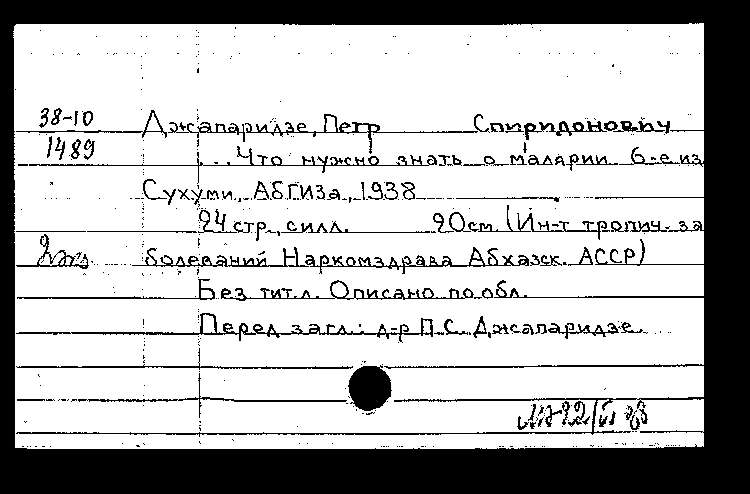 38-10
1489
Джапаридзе, Петр Спиридонович
...Что нужно знать о малярии 6-е из
Сухуми, АБГИЗа, 1938
24 стр., силл. 20см (Ин-т тропич. за
2экз
болеваний Наркомздрава Абхазск. АССР)
Без тит.л. Описано по обл.
Перед загл.: д-р П.С. Джапаридзе.